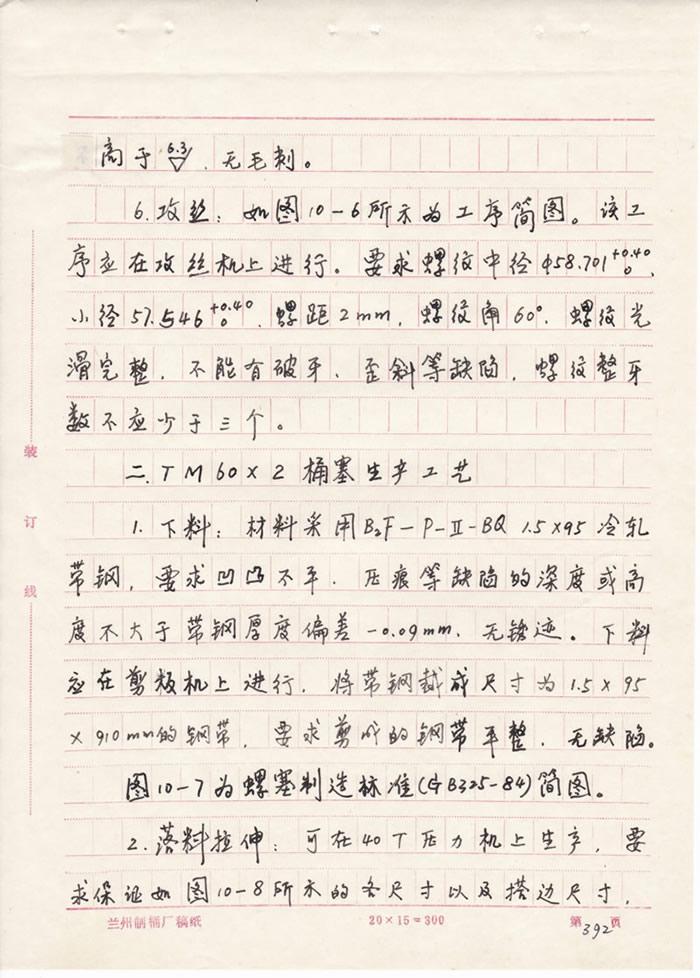 高于6.3▽、无毛刺。
6.攻丝：如图10-6所示为工序简图。该工
序应在攻丝机上进行。要求螺纹中径φ58.701+0.40 0、
小径57.546+0.40 0、螺距2mm、螺纹角60°、螺纹光
滑完整、不能有破牙、歪斜等缺陷、螺纹整牙
数不应少于三个。
二.TM60×2桶塞生产工艺
1.下料：材料采用B₂F-P-Ⅱ-BQ 1.5×95冷轧
带钢，要求凹凸不平、压痕等缺陷的深度或高
度不大于带钢厚度偏差-0.09mm、无锈迹。下料
应在剪板机上进行，将带钢裁成尺寸为1.5×95
×910mm的钢带，要求剪成的钢带平整、无缺陷。
图10-7为螺塞制造标准(GB325-84)简图。
2.落料拉伸：可在40T压力机上生产，要
求保证如图10-8所示的各尺寸以及搭边尺寸，
装
订
线
兰州制桶厂稿纸
20×15=300
第392页